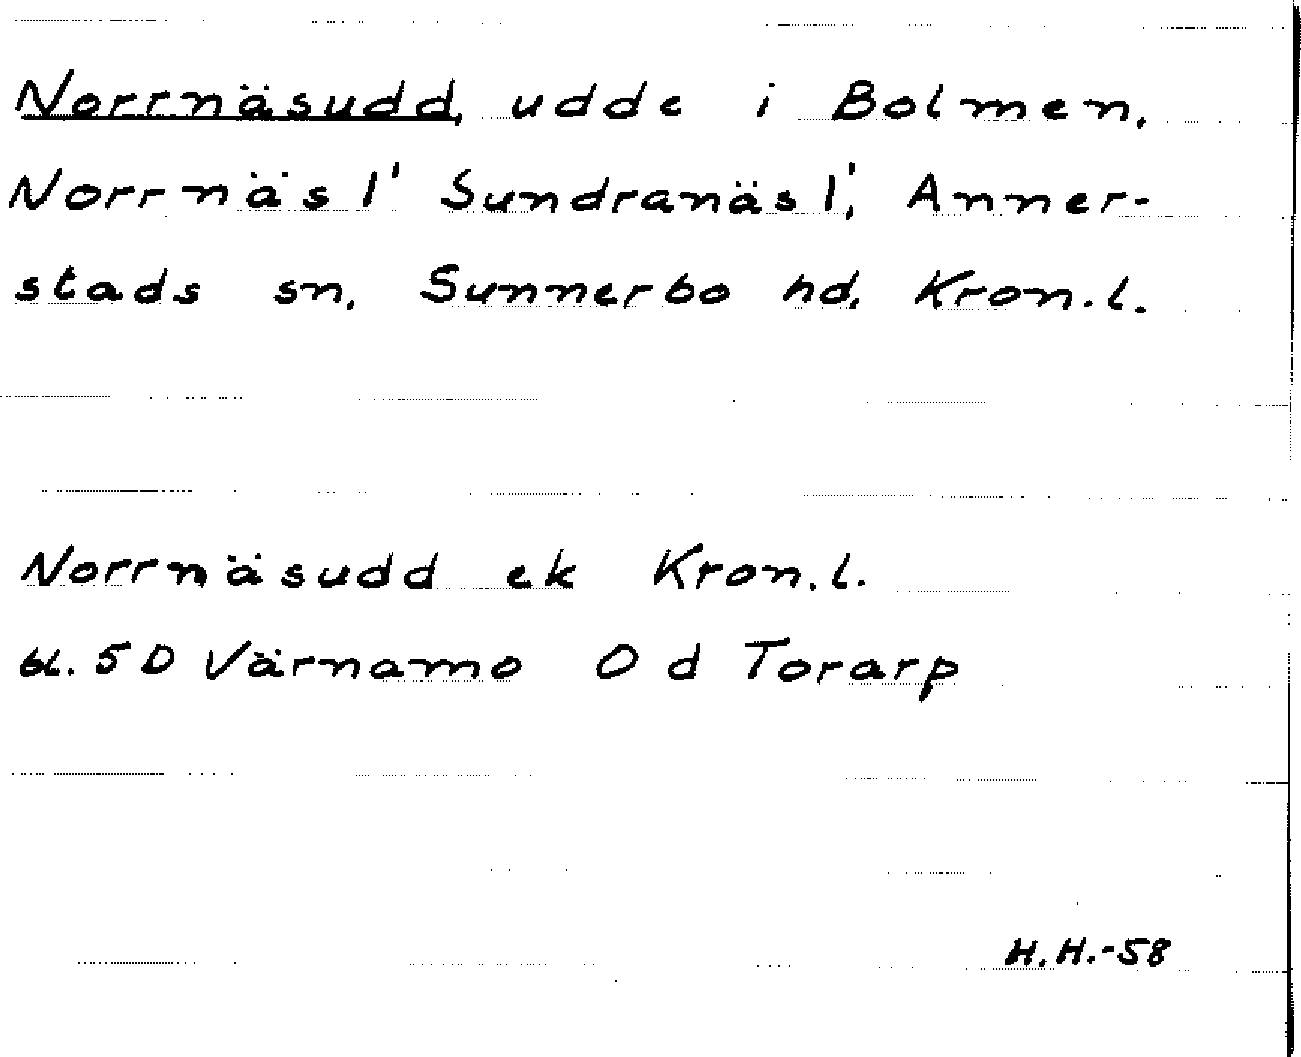 Norrnäsudd, udde i Bolmen,
Norrnäs 1' Sundranäs 1', Anner-
stads sn, Sunnerbo hd, Kron.l.
Norrnäsudd ek Kron.l.
bl. 5D Värnamo O d Torarp
H.H.-58